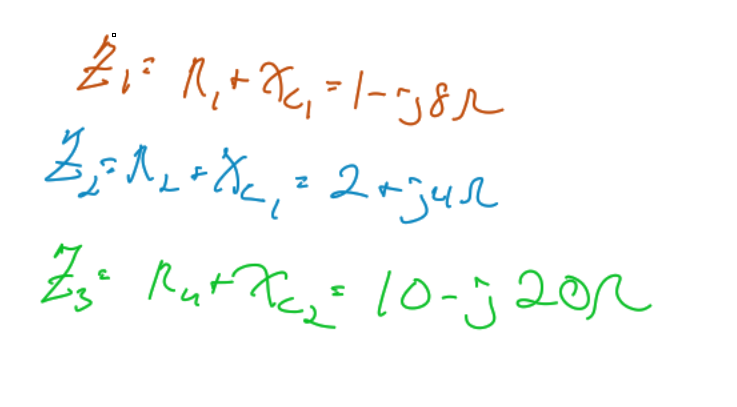 Z₁ = R₁ + X_C₁ = 1 - j8Ω
Z₂ = R₂ + X_C₁ = 2 + j4Ω
Z₃ = R₄ + X_C₂ = 10 - j20Ω